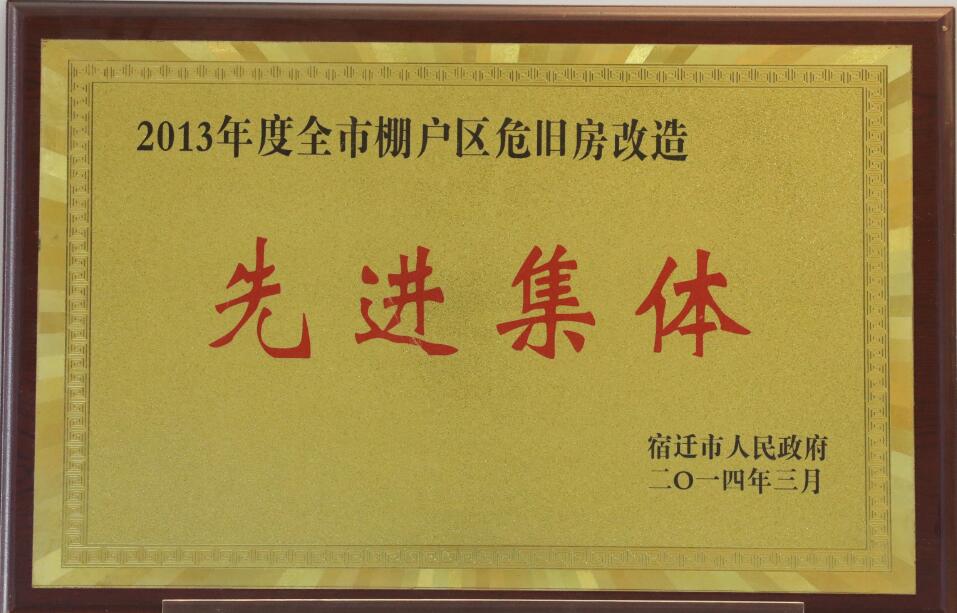 2013年度全市棚户区危旧房改造
先进集体
宿迁市人民政府
二〇一四年三月